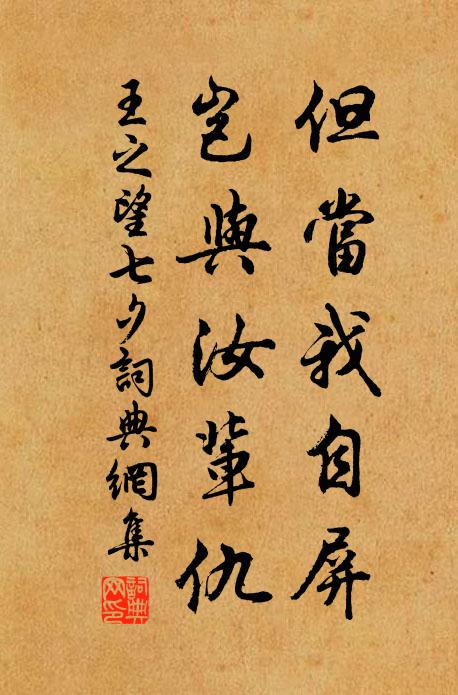 但當我自屏
豈與汝輩仇
王之望七夕詞典網集
詞典網印